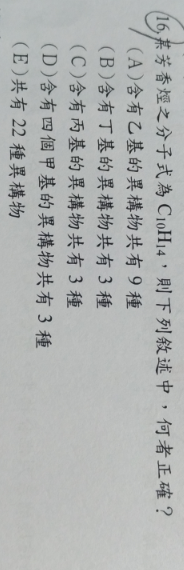 16.某芳香烴之分子式為 C₁₀H₁₄，則下列敘述中，何者正確？
(A)含有乙基的異構物共有 9 種
(B)含有丁基的異構物共有 3 種
(C)含有丙基的異構物共有 3 種
(D)含有四個甲基的異構物共有 3 種
(E)共有 22 種異構物